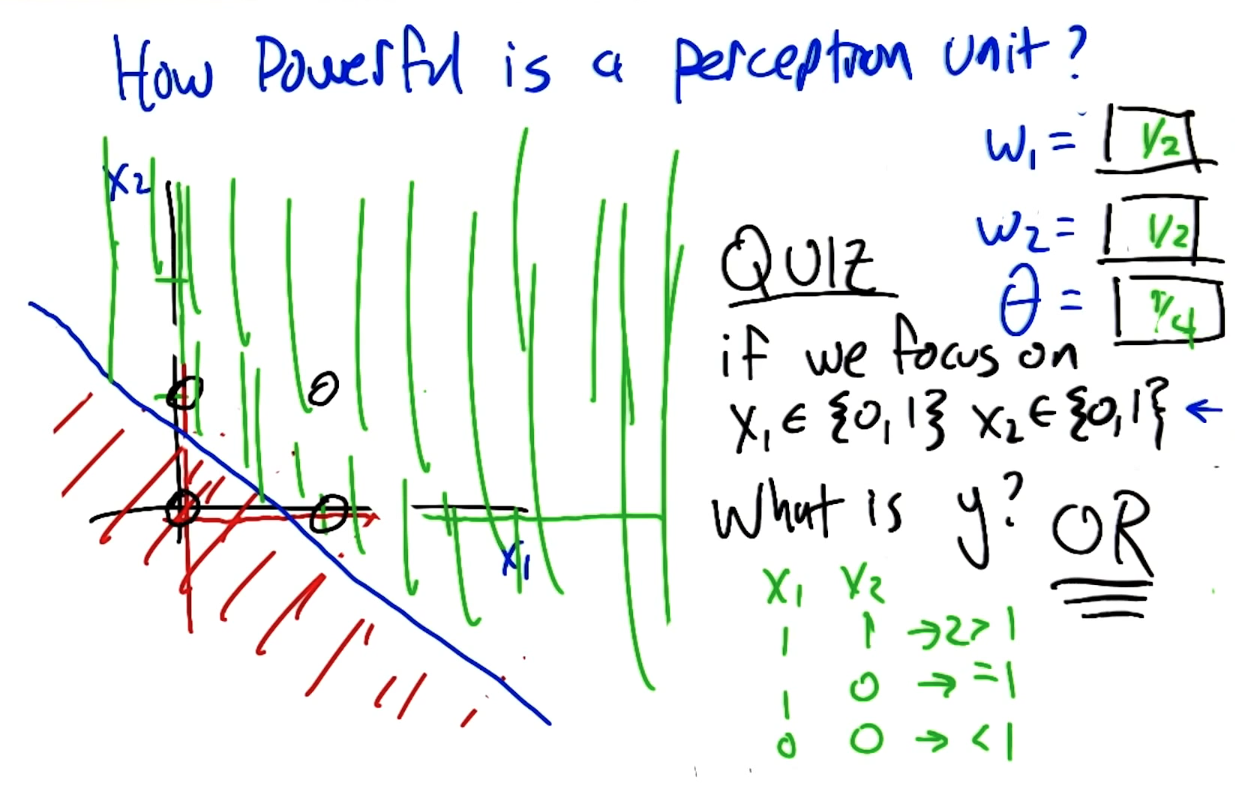 How Powerful is a perceptron unit?
X2
W1 = 1/2
W2 = 1/2
θ = 1/4
QUIZ
if we focus on
X1 ∈ {0,1} X2 ∈ {0,1} ←
What is y? OR
X1
X1 X2
1 1 → 2 > 1
1 0 → = 1
0 0 → < 1